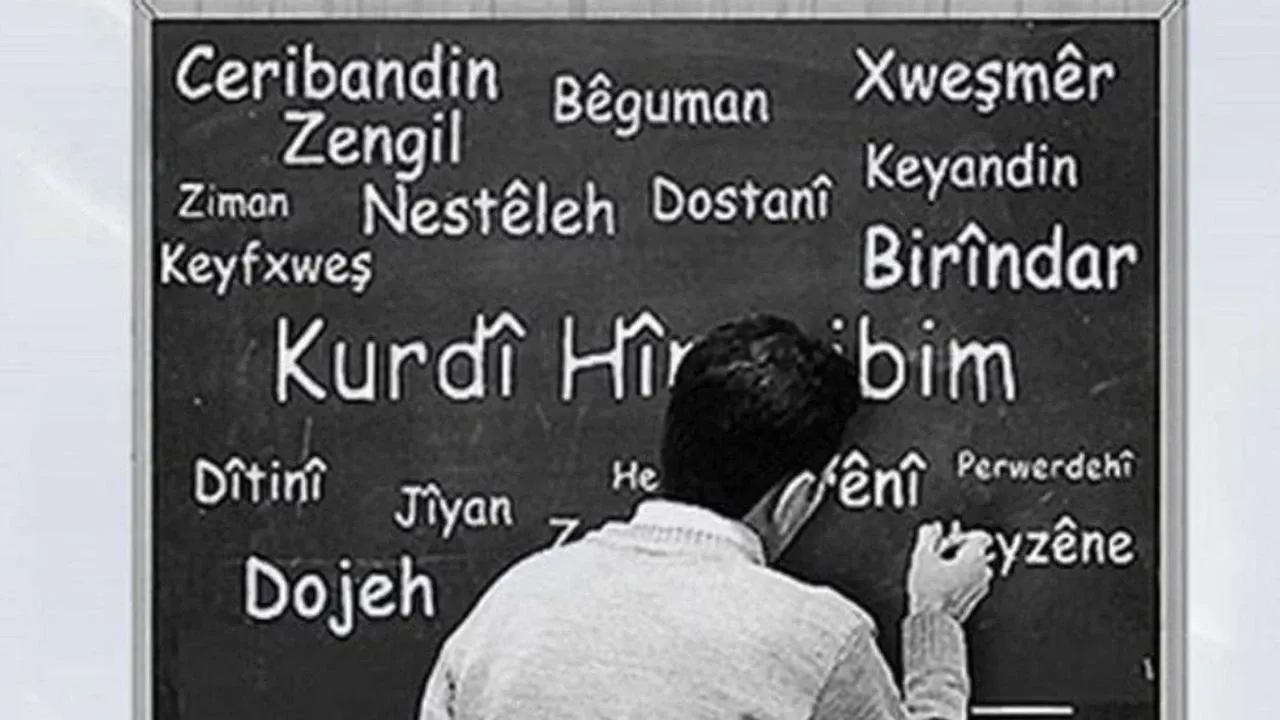 Ceribandin
Bêguman
Xweşmêr
Zengil
Keyandin
Ziman
Nestêleh
Dostanî
Keyfxweş
Birîndar
Kurdî
Dîtinî
Perwerdehî
Jîyan
Dojeh